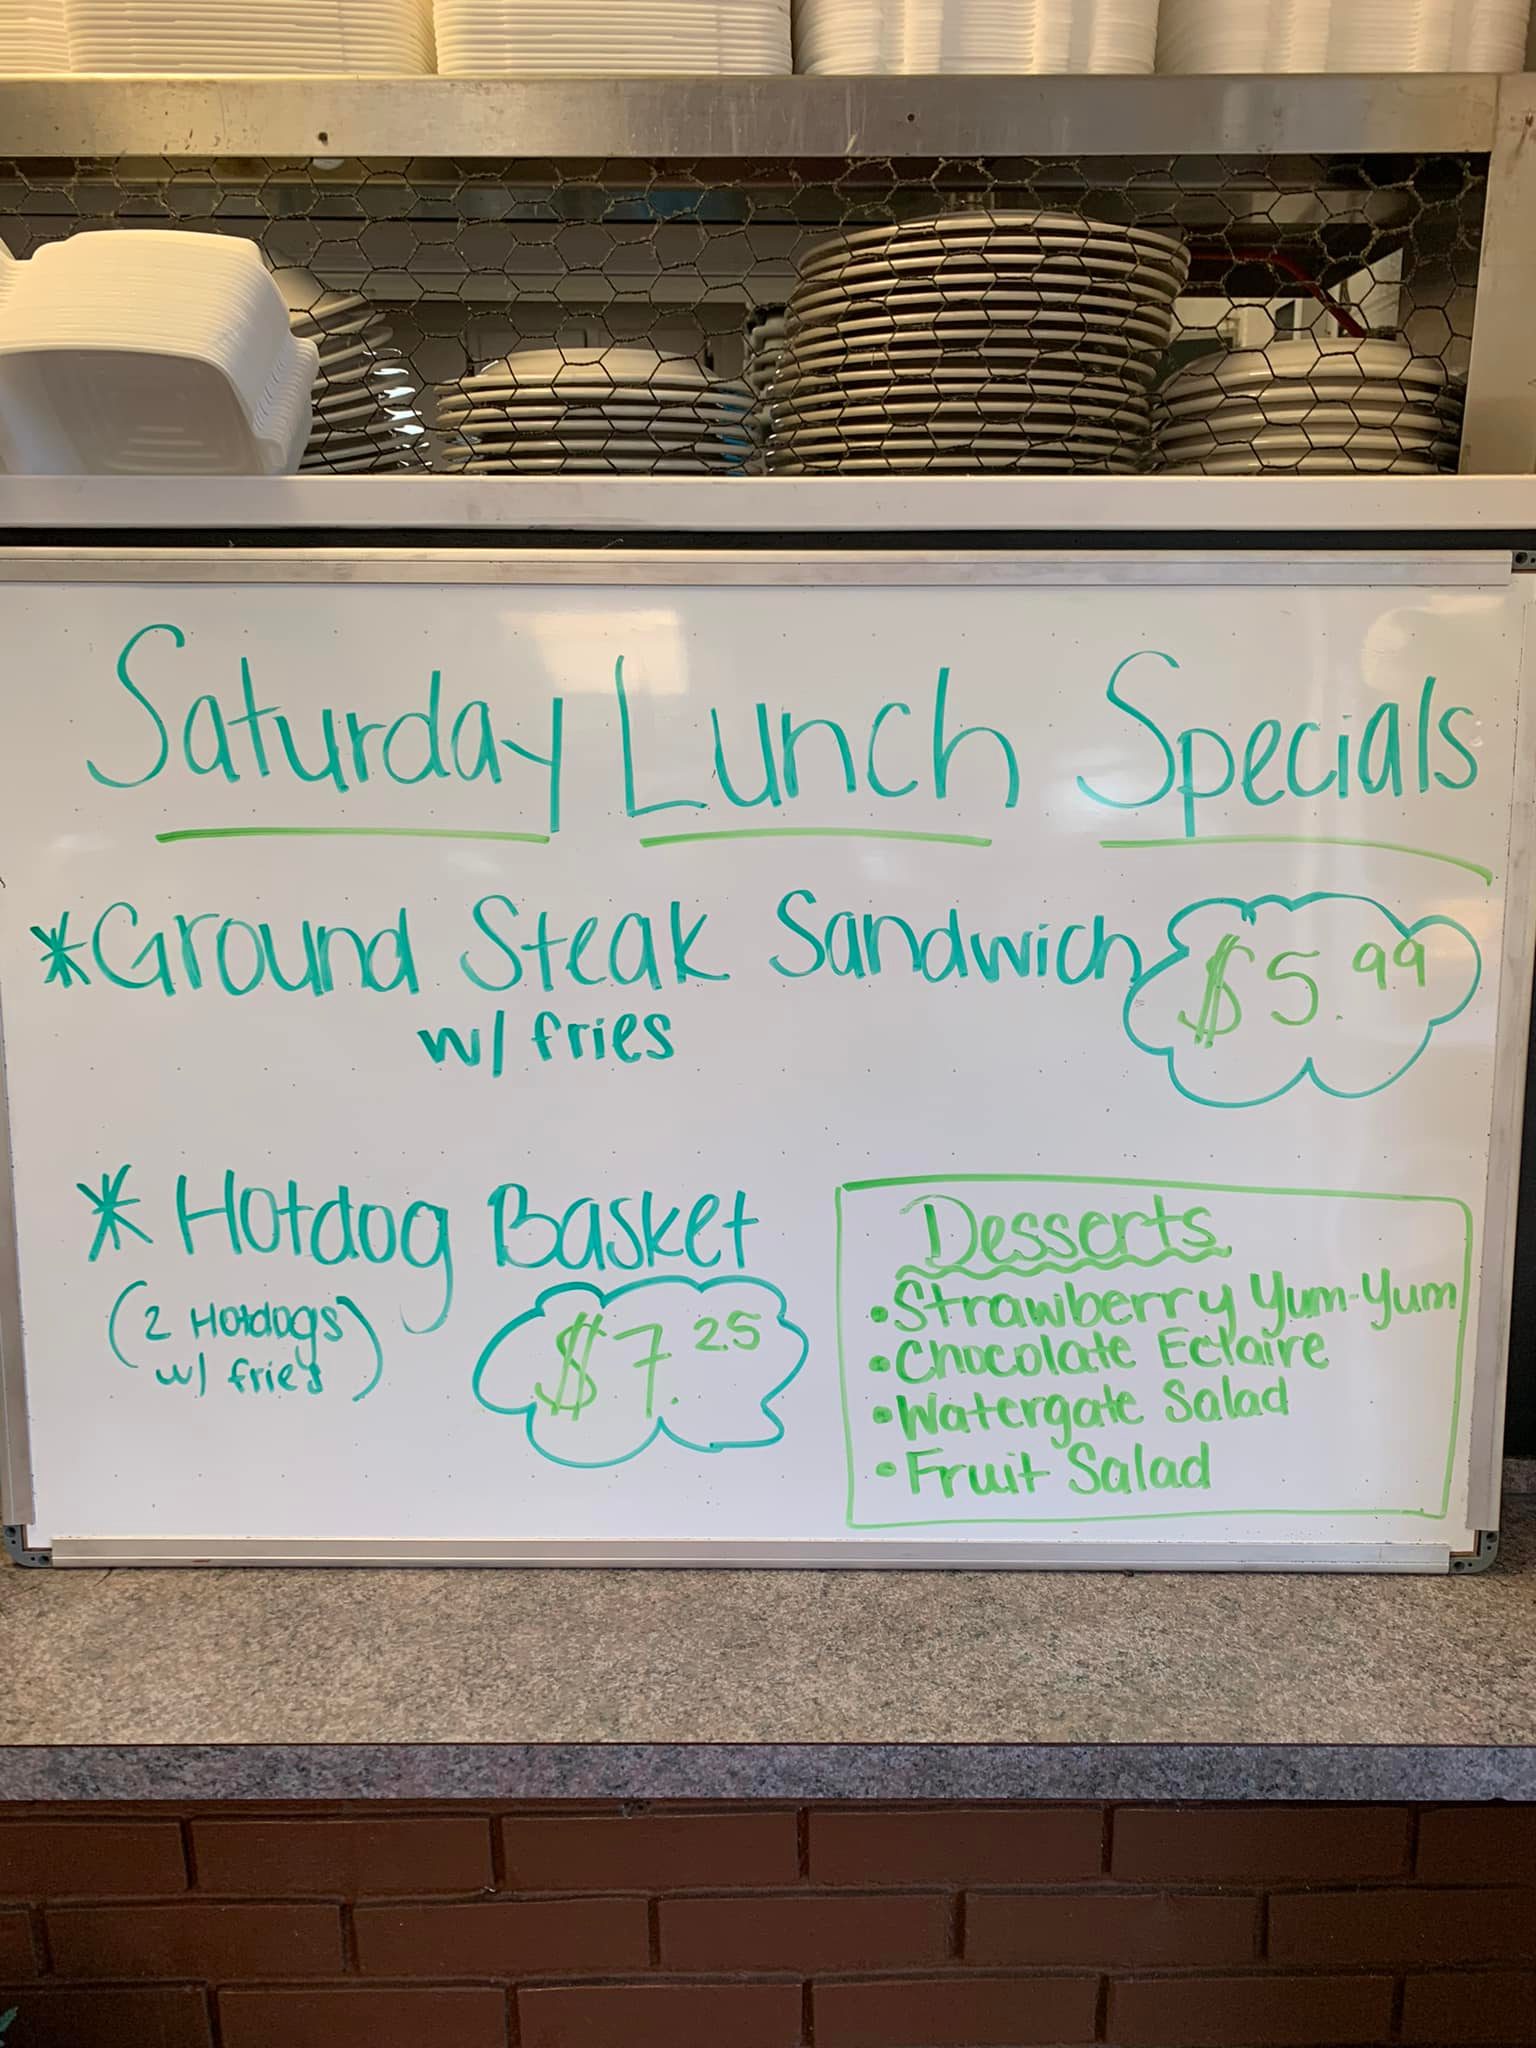 Saturday Lunch Specials
*Ground Steak Sandwich $5.99
w/ fries
* Hotdog Basket
(2 Hotdogs
w/ fries)
$7.25
Desserts
• Strawberry Yum-Yum
• Chocolate Eclaire
• Watergate Salad
• Fruit Salad